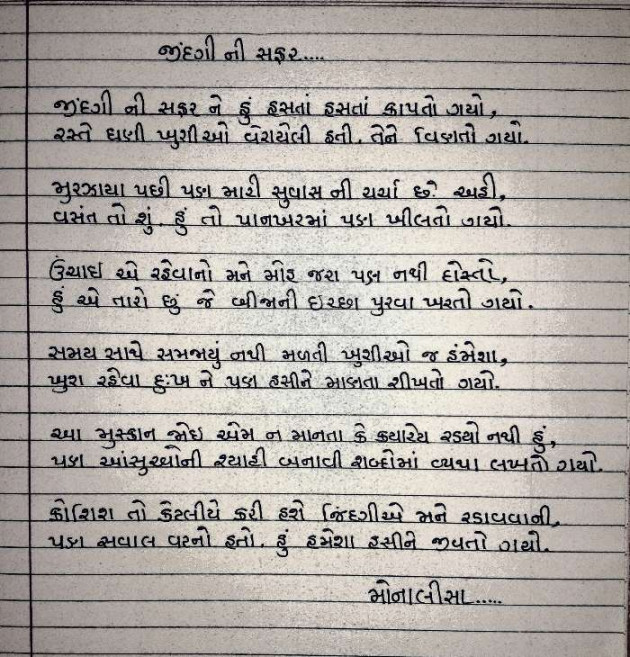 જીંદગી ની સફર....
જીંદગી ની સફર ને હું હસતાં હસતાં કાપતો ગયો,
રસ્તે ઘણી ખુશીઓ વેરાયેલી હતી. તેને વિણતો ગયો.
મુરઝાયા પછી પણ મારી સુવાસ ની ચર્ચા છે અહી,
વસંત તો શું. હું તો પાનખરમાં પણ ખીલતો ગયો.
ઉંચાઇ એ રહેવાનો મને મોહ જરા પણ નથી દોસ્તો,
હું એ તારો છું જે બીજાની ઇચ્છા પુરવા ખરતો ગયો.
સમય સાથે સમજાયું નથી મળતી ખુશીઓ જ હંમેશા,
ખુશ રહેવા દુ:ખ ને પણ હસીને માણતા શીખતો ગયો.
આ મુસ્કાન જોઇ એમ ન માનતા કે ક્યારેય રડયો નથી હું,
પણ આંસુઓની શ્યાહી બનાવી શબ્દોમાં વ્યથા લખતો ગયો.
કોશિશ તો કેટલીયે કરી હશે જિંદગીએ મને રડાવવાની,
પણ સવાલ વટનો હતો. હું હમેશા હસીને જીવતો ગયો.
મોનાલીસા.....